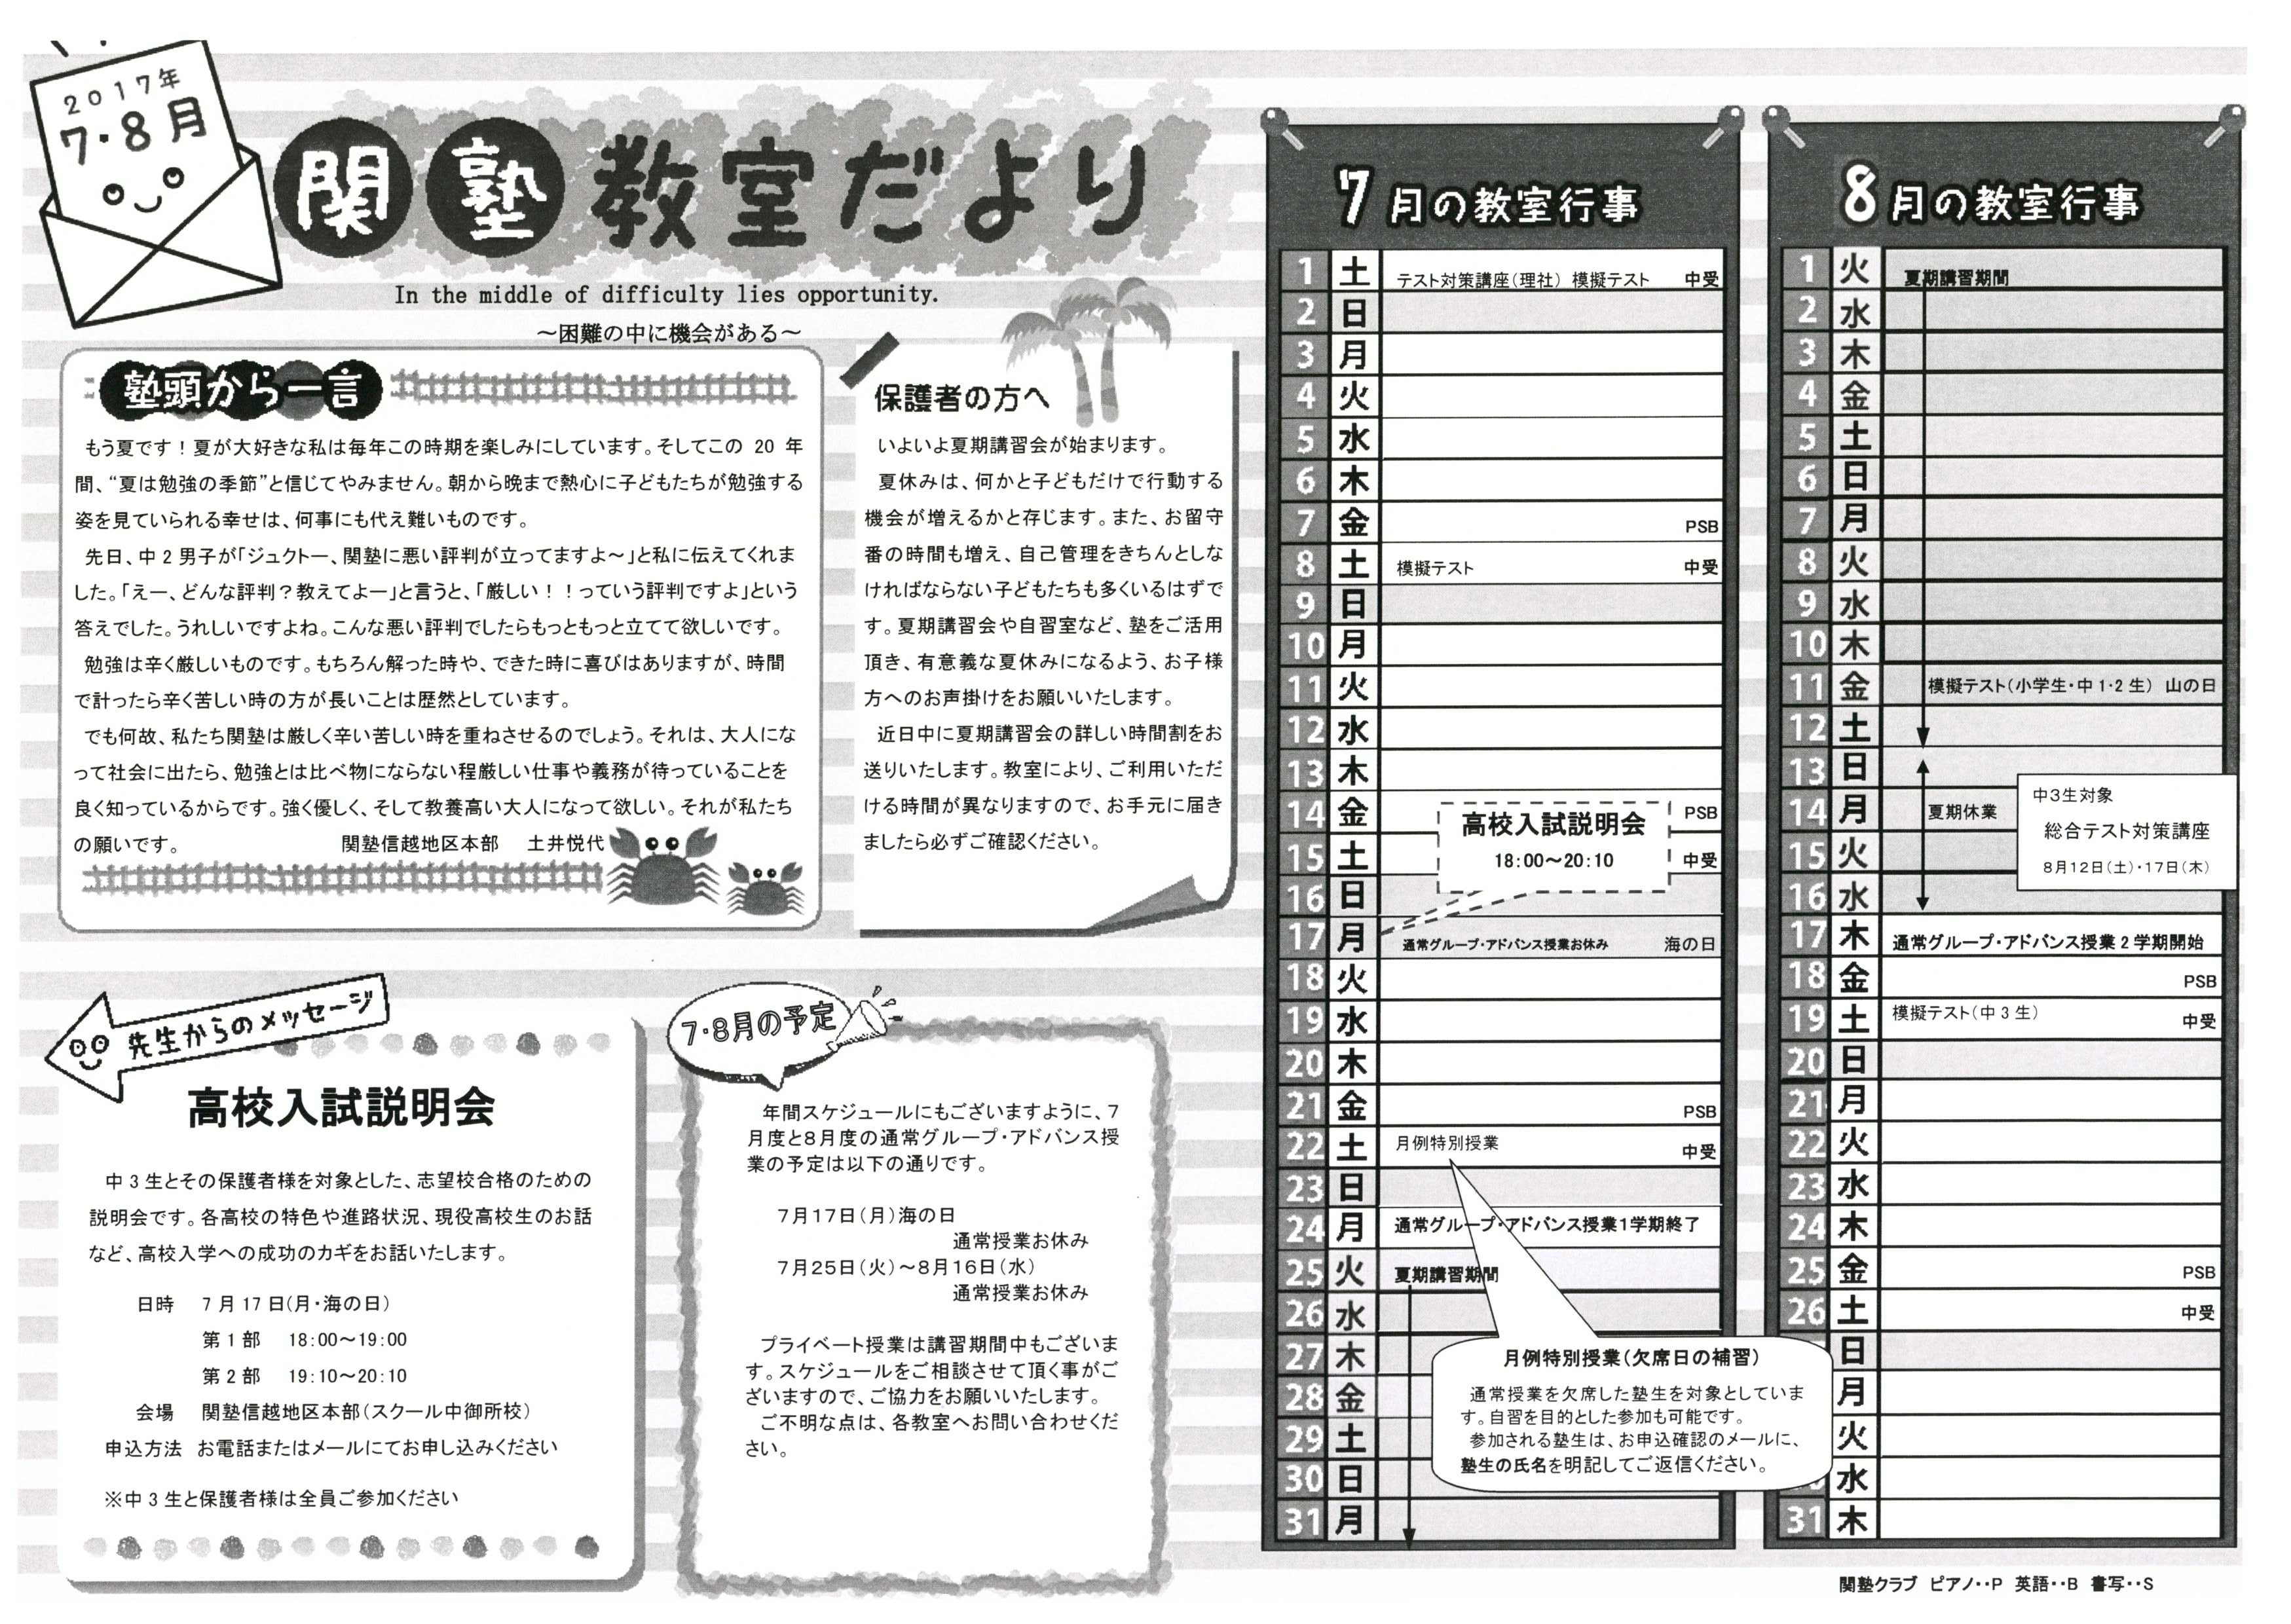 2017年
7・8月
関塾教室だより
In the middle of difficulty lies opportunity.
～困難の中に機会がある～
塾頭から一言
もう夏です！夏が大好きな私は毎年この時期を楽しみにしています。そしてこの 20 年
間、“夏は勉強の季節”と信じてやみません。朝から晩まで熱心に子どもたちが勉強する
姿を見ていられる幸せは、何事にも代え難いものです。
先日、中２男子が「ジュクトー、関塾に悪い評判が立ってますよ～」と私に伝えてくれま
した。「えー、どんな評判？教えてよー」と言うと、「厳しい！！っていう評判ですよ」という
答えでした。うれしいですよね。こんな悪い評判でしたらもっともっと立てて欲しいです。
勉強は辛く厳しいものです。もちろん解った時や、できた時に喜びはありますが、時間
で計ったら辛く苦しい時の方が長いことは歴然としています。
でも何故、私たち関塾は厳しく辛い苦しい時を重ねさせるのでしょう。それは、大人にな
って社会に出たら、勉強とは比べ物にならない程厳しい仕事や義務が待っていることを
良く知っているからです。強く優しく、そして教養高い大人になって欲しい。それが私たち
の願いです。 関塾信越地区本部 土井悦代
保護者の方へ
いよいよ夏期講習会が始まります。
夏休みは、何かと子どもだけで行動する
機会が増えるかと存じます。また、お留守
番の時間も増え、自己管理をきちんとしな
ければならない子どもたちも多くいるはずで
す。夏期講習会や自習室など、塾をご活用
頂き、有意義な夏休みになるよう、お子様
方へのお声掛けをお願いいたします。
近日中に夏期講習会の詳しい時間割をお
送りいたします。教室により、ご利用いただ
ける時間が異なりますので、お手元に届き
ましたら必ずご確認ください。
先生からのメッセージ
高校入試説明会
中３生とその保護者様を対象とした、志望校合格のための
説明会です。各高校の特色や進路状況、現役高校生のお話
など、高校入学への成功のカギをお話いたします。
日時 7月17日(月・海の日)
第１部 18:00～19:00
第２部 19:10～20:10
会場 関塾信越地区本部(スクール中御所校)
申込方法 お電話またはメールにてお申し込みください
※中３生と保護者様は全員ご参加ください
7・8月の予定
年間スケジュールにもございますように、７
月度と８月度の通常グループ・アドバンス授
業の予定は以下の通りです。
７月１７日(月)海の日
通常授業お休み
７月２５日(火)～８月１６日(水)
通常授業お休み
プライベート授業は講習期間中もございま
す。スケジュールをご相談させて頂く事がご
ざいますので、ご協力をお願いいたします。
ご不明な点は、各教室へお問い合わせくだ
さい。
7月の教室行事
1 土 テスト対策講座(理社) 模擬テスト 中受
2 日
3 月
4 火
5 水
6 木
7 金 PSB
8 土 模擬テスト 中受
9 日
10 月
11 火
12 水
13 木
14 金 PSB
高校入試説明会
18:00～20:10
15 土 中受
16 日
17 月 通常グループ・アドバンス授業お休み 海の日
18 火
19 水
20 木
21 金 PSB
22 土 月例特別授業 中受
23 日
24 月 通常グループ・アドバンス授業１学期終了
25 火 夏期講習期間
26 水
27 木
28 金
29 土
30 日
31 月
月例特別授業(欠席日の補習)
通常授業を欠席した塾生を対象としていま
す。自習を目的とした参加も可能です。
参加される塾生は、お申込確認のメールに、
塾生の氏名を明記してご返信ください。
8月の教室行事
1 火 夏期講習期間
2 水
3 木
4 金
5 土
6 日
7 月
8 火
9 水
10 木
11 金 模擬テスト(小学生・中１・２生) 山の日
12 土
13 日
14 月 夏期休業
15 火
16 水
中3生対象
総合テスト対策講座
8月12日(土)・17日(木)
17 木 通常グループ・アドバンス授業２学期開始
18 金 PSB
19 土 模擬テスト(中３生) 中受
20 日
21 月
22 火
23 水
24 木
25 金 PSB
26 土 中受
日
月
火
水
31 木
関塾クラブ ピアノ・・P 英語・・B 書写・・S